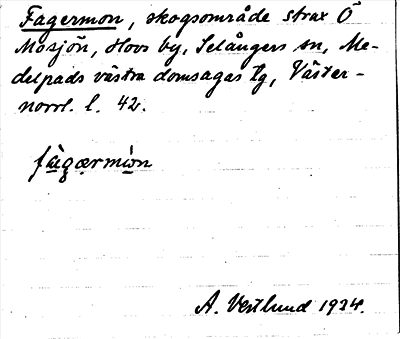 Fagermon, skogsområde strax Ö
Mosjön, Hovs by, Selångers sn, Me-
delpads västra domsagas tg, Väster-
norrl. l. 42.
fàgærmòn
A. Vestlund 1924.